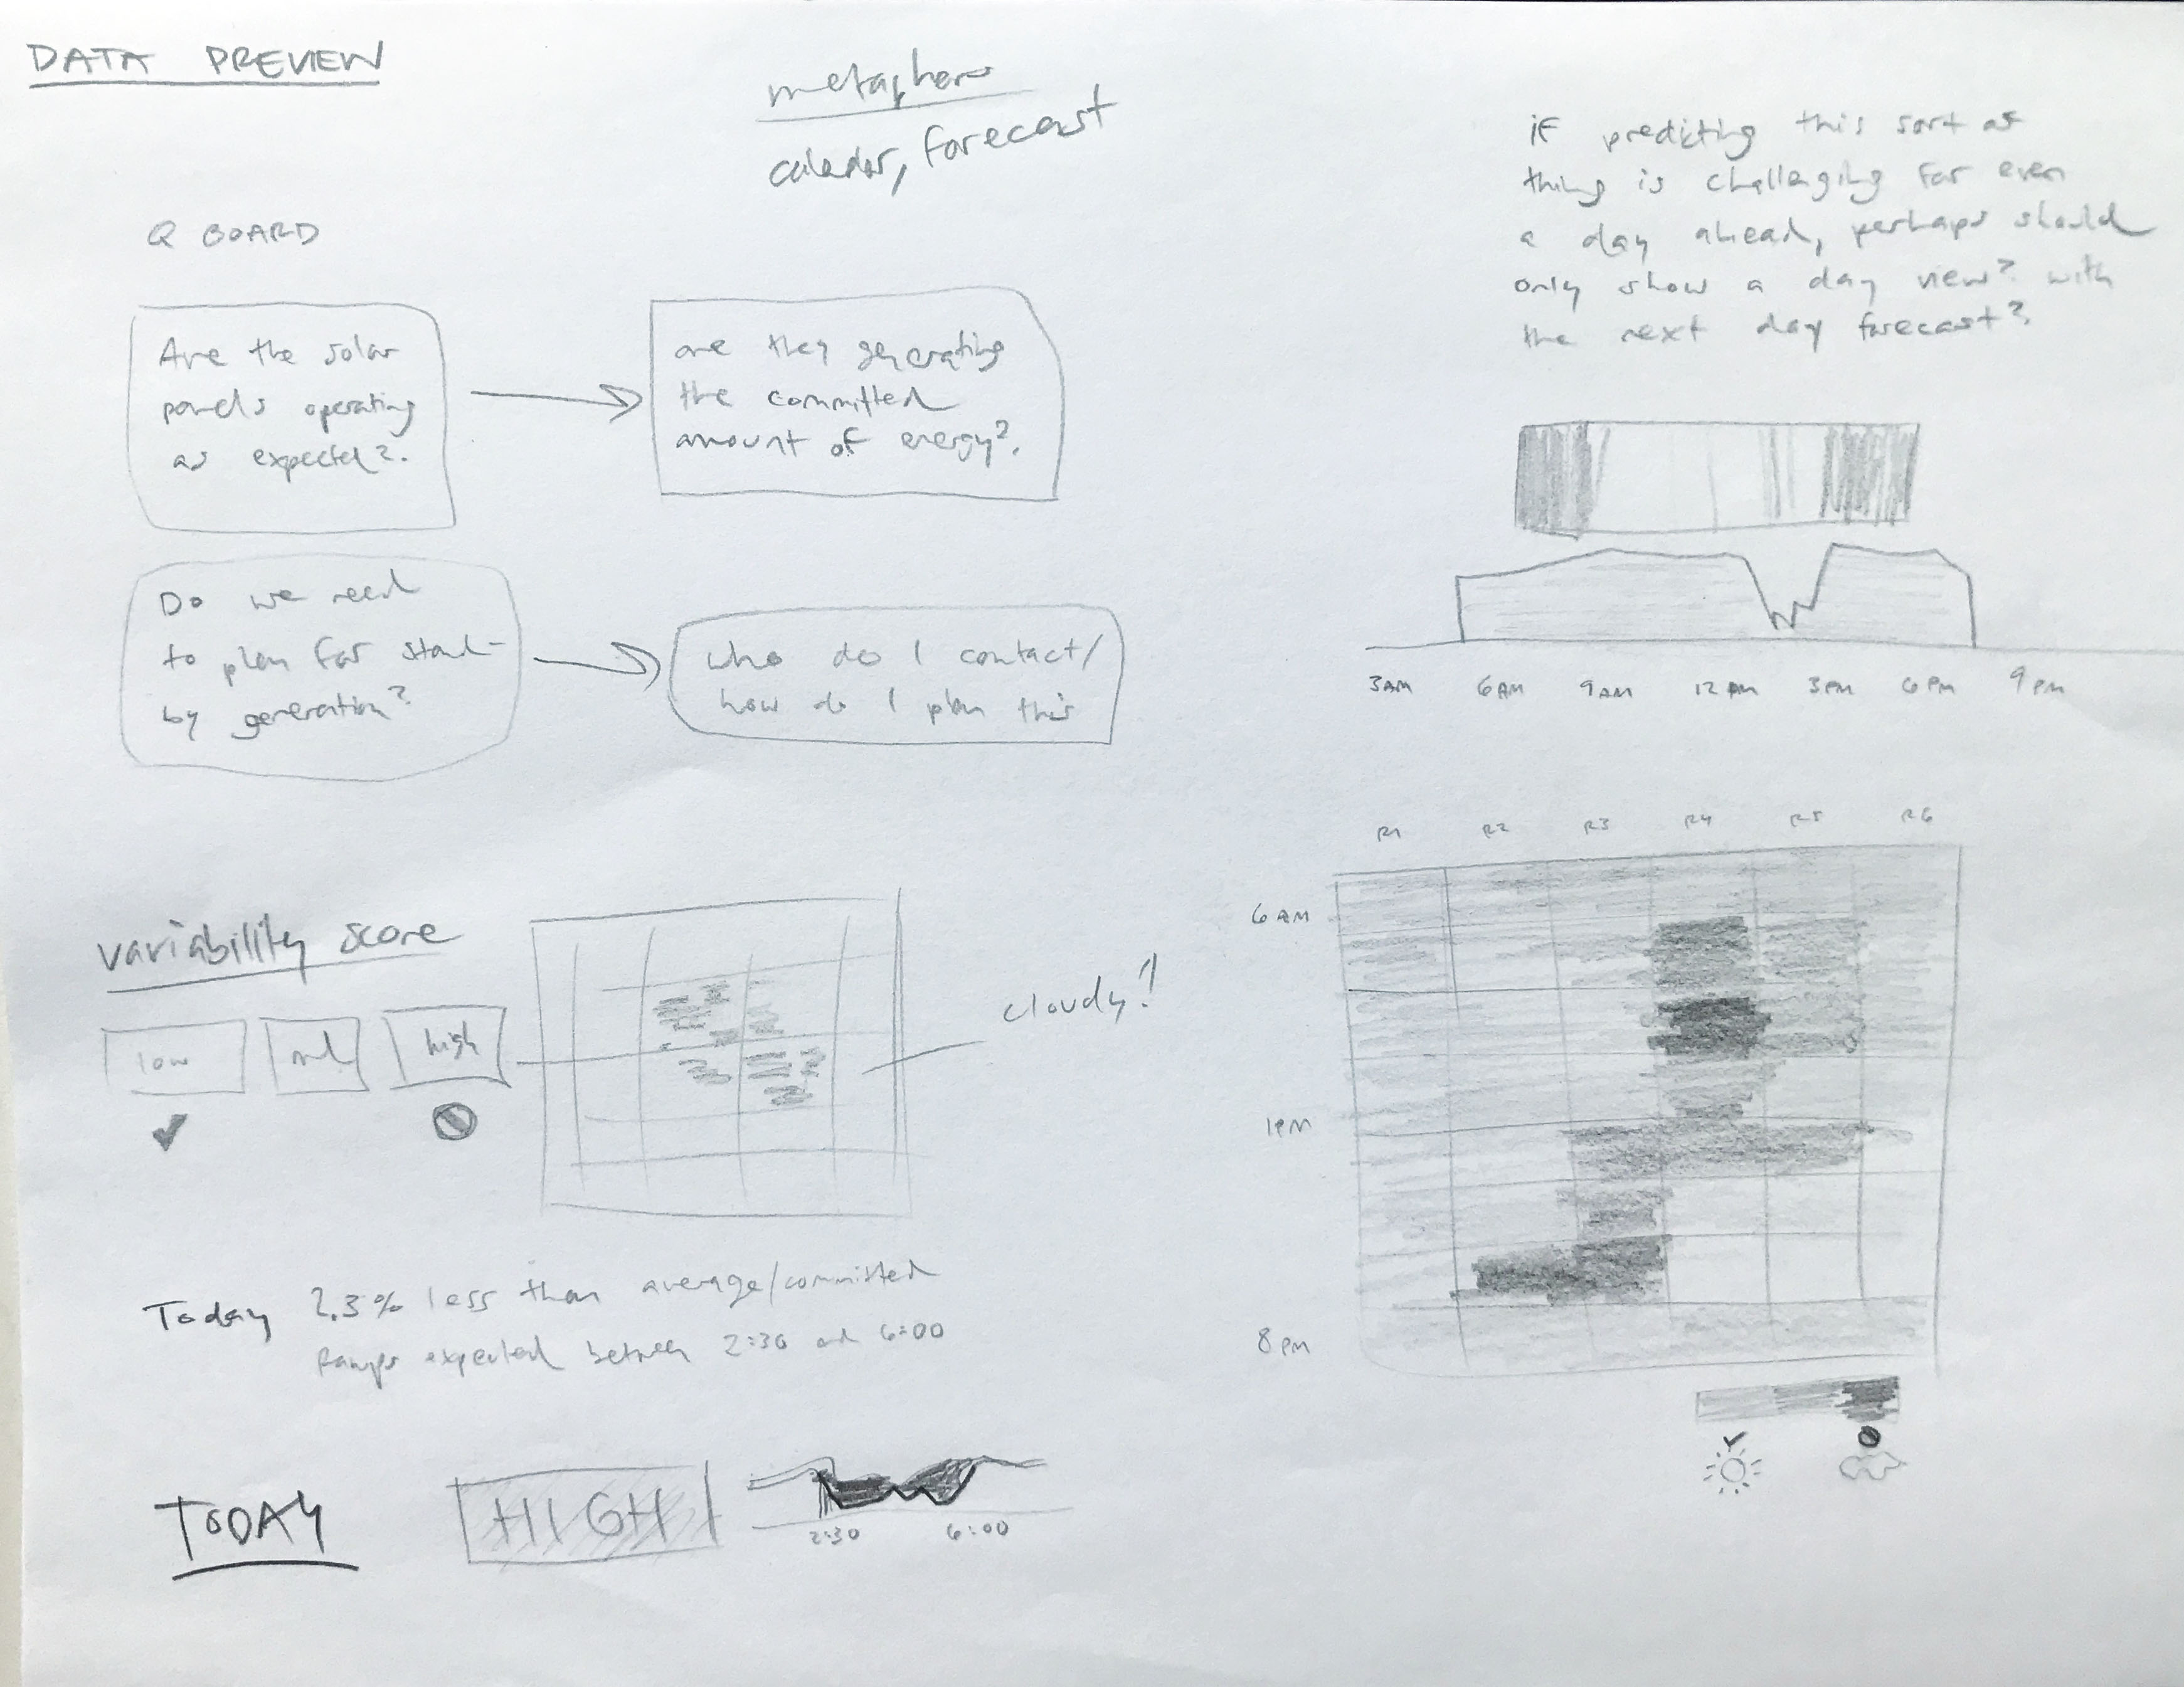 DATA PREVIEW
metaphors
calendar, forecast
Q BOARD
Are the solar
panels operating
as expected?
are they generating
the committed
amount of energy?
Do we need
to plan for stand-
by generation?
who do I contact/
how do I plan this
if predicting this sort of
thing is challenging for even
a day ahead, perhaps should
only show a day view? with
the next day forecast?
3AM 6AM 9AM 12PM 3PM 6PM 9PM
variability score
low
high
cloudy?
R1 R2 R3 R4 R5 R6
6AM
1PM
8PM
Today 2.3% less than average/committed
Ramps expected between 2:30 and 6:00
TODAY
HIGH
2:30 6:00